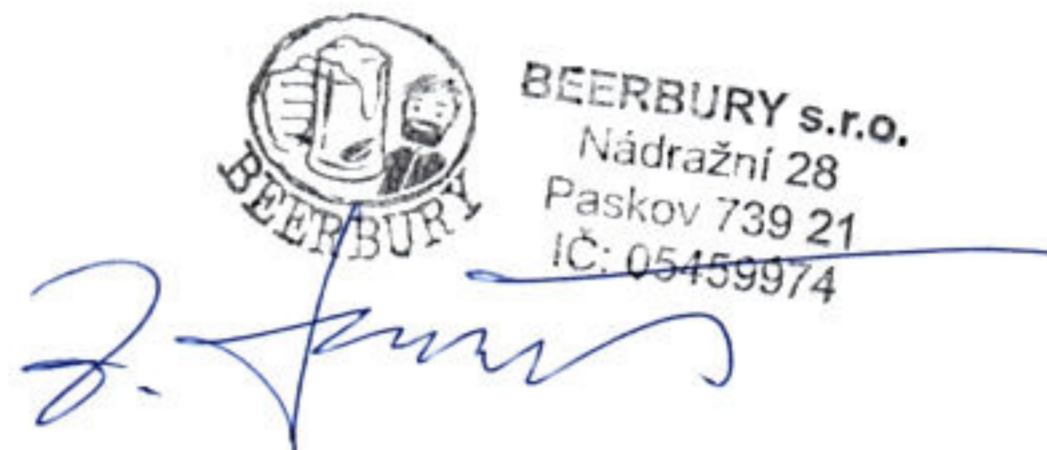 BEERBURY
BEERBURY s.r.o.
Nádražní 28
Paskov 739 21
IČ: 05459974